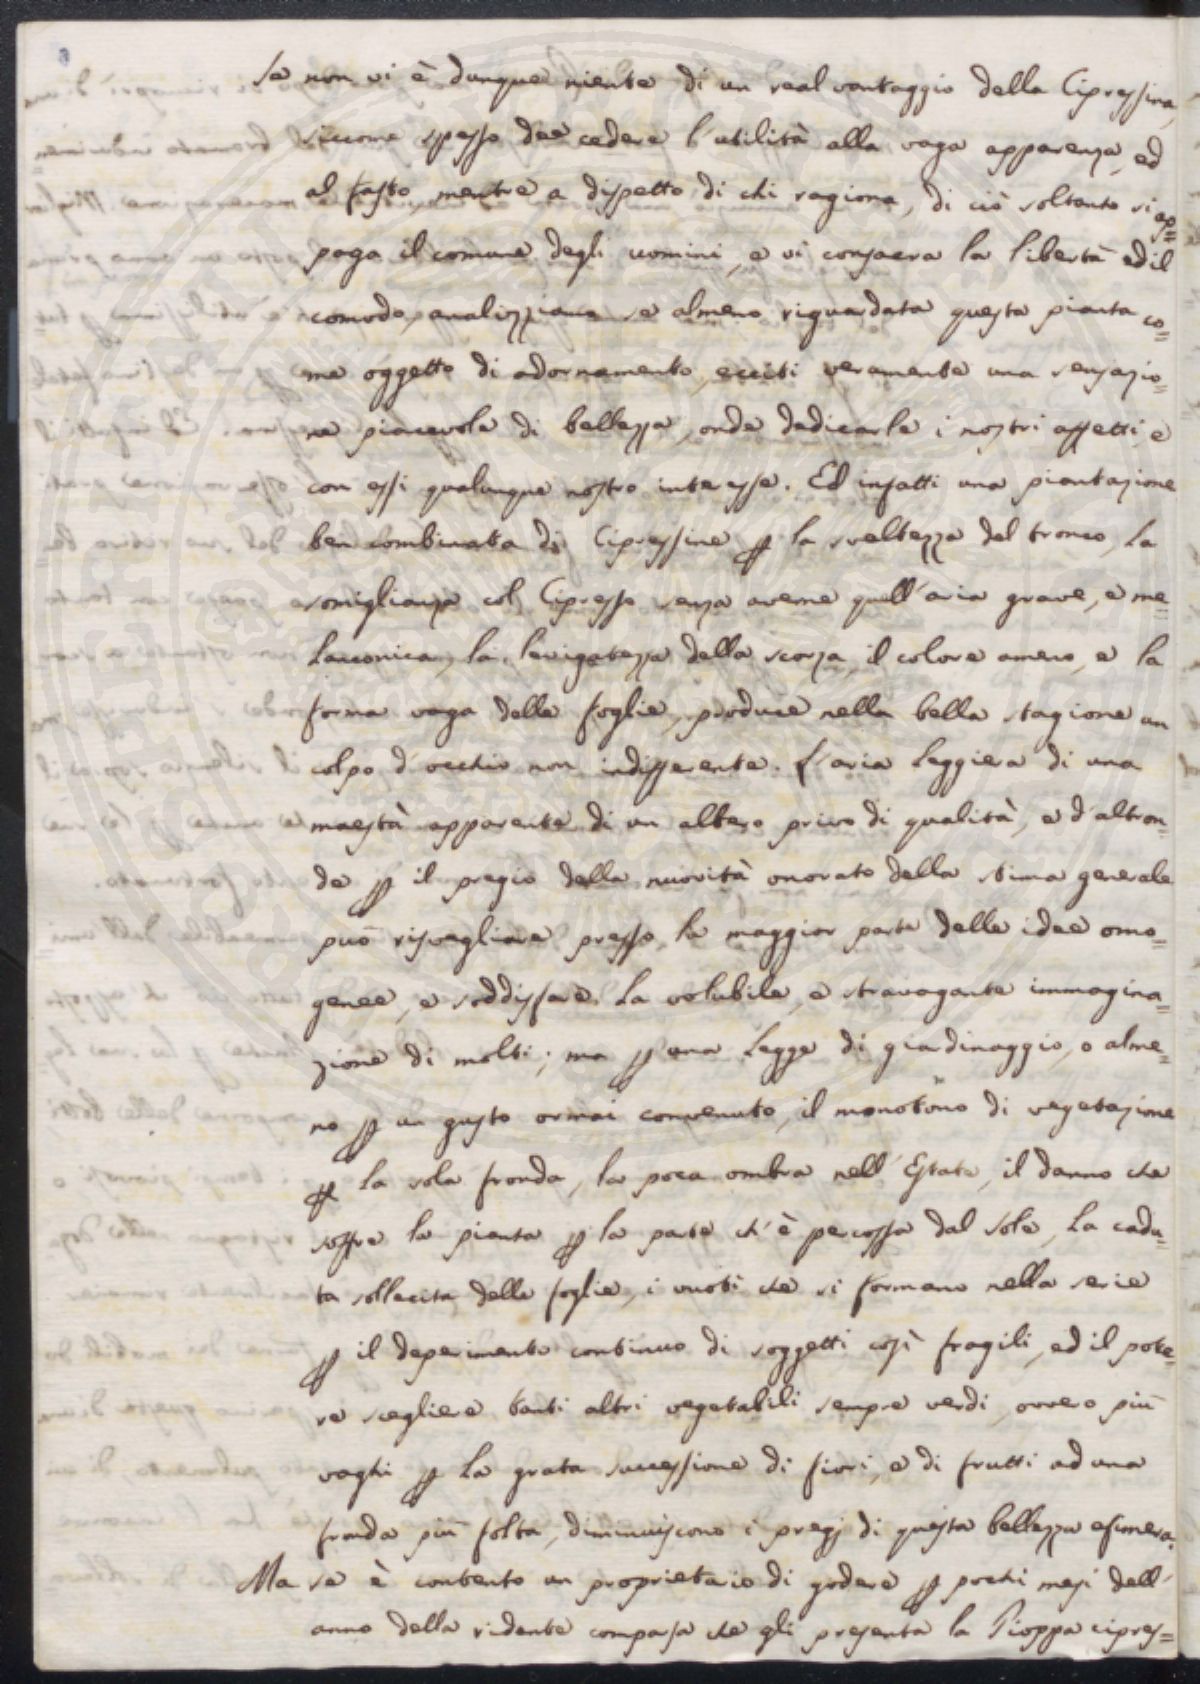 Se non vi è dunque niente di un real vantaggio della Cipressina,
siccome spesso dee cedere l'utilità alla vaga apparenza, ed
al fasto, mentre a dispetto di chi ragiona, di ciò soltanto si ap=
paga il comune degli uomini, e vi consacra la libertà ed il
comodo, analizziamo se almeno riguardata questa pianta co=
me oggetto di adornamento, ecciti veramente una sensazio=
ne piacevole di bellezza, onde dedicarle i nostri affetti, e
con essi qualunque nostro interesse. Ed infatti una piantazione
ben combinata di Cipressine ꝑ la sveltezza del tronco, la
somiglianza col Cipresso senza averne quell'aria grave, e me=
lanconica, la levigatezza della scorza, il colore ameno, e la
forma vaga delle foglie, produce nella bella stagione un
colpo d'occhio non indifferente. L'aria leggiera di una
maestà apparente di un albero privo di qualità, e d'altron=
de ꝑ il pregio della nuovità onorato della stima generale
può risvegliare presso la maggior parte delle idee omo=
genee, e soddisfare la volubile, e stravagante immagina=
zione di molti; ma ꝑ una legge di giardinaggio, o alme=
no ꝑ un gusto ormai convenuto, il monotono di vegetazione
ꝑ la sola fronda, la poca ombra nell'Estate, il danno che
soffre la pianta ꝑ la parte ch'è percossa dal sole, la cadu=
ta sollecita delle foglie, i vuoti che si formano nella serie
ꝑ il deperimento continuo di soggetti così fragili, ed il pote=
re scegliere tanti altri vegetabili sempre verdi, ovvero più
vaghi ꝑ la grata successione di fiori, e di frutti ad una
fronda più folta, diminuiscono i pregj di questa bellezza efimera.
Ma se è contento un proprietario di godere ꝑ pochi mesi dell'
anno della ridente comparsa che gli presenta la Pioppa cipres=